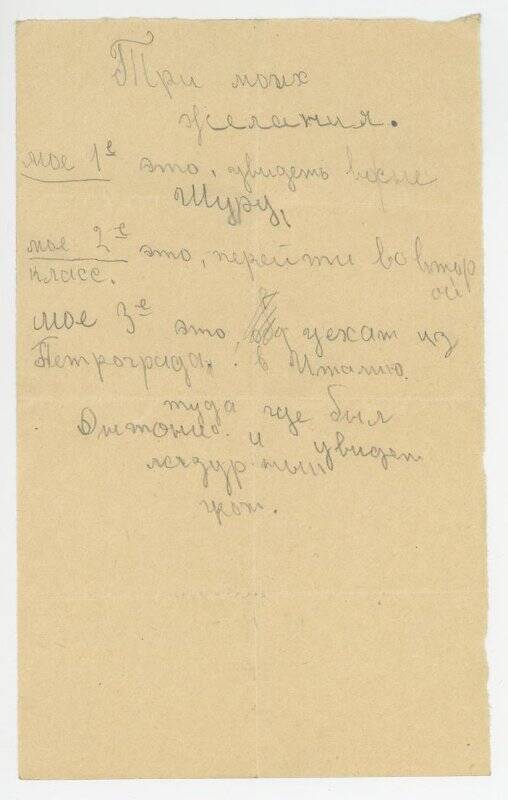 Три моих
желания.
мое 1е это, увидеть
Шуру,
мое 2е это, перейти во втор
ой
класс.
мое 3е это, уехат из
Петрограда. в Италию.
туда где был
и увидет
лазурный
грот.